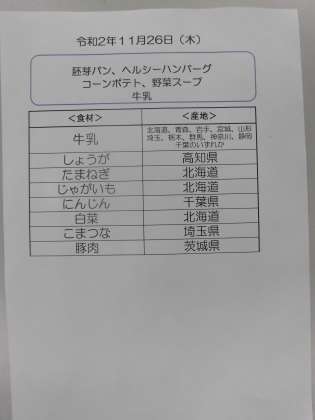 令和2年11月26日（木）
胚芽パン、ヘルシーハンバーグ
コーンポテト、野菜スープ
牛乳
＜食材＞ ＜産地＞
牛乳 北海道、青森、岩手、宮城、山形
埼玉、栃木、群馬、神奈川、静岡
千葉のいずれか
しょうが 高知県
たまねぎ 北海道
じゃがいも 北海道
にんじん 千葉県
白菜 北海道
こまつな 埼玉県
豚肉 茨城県